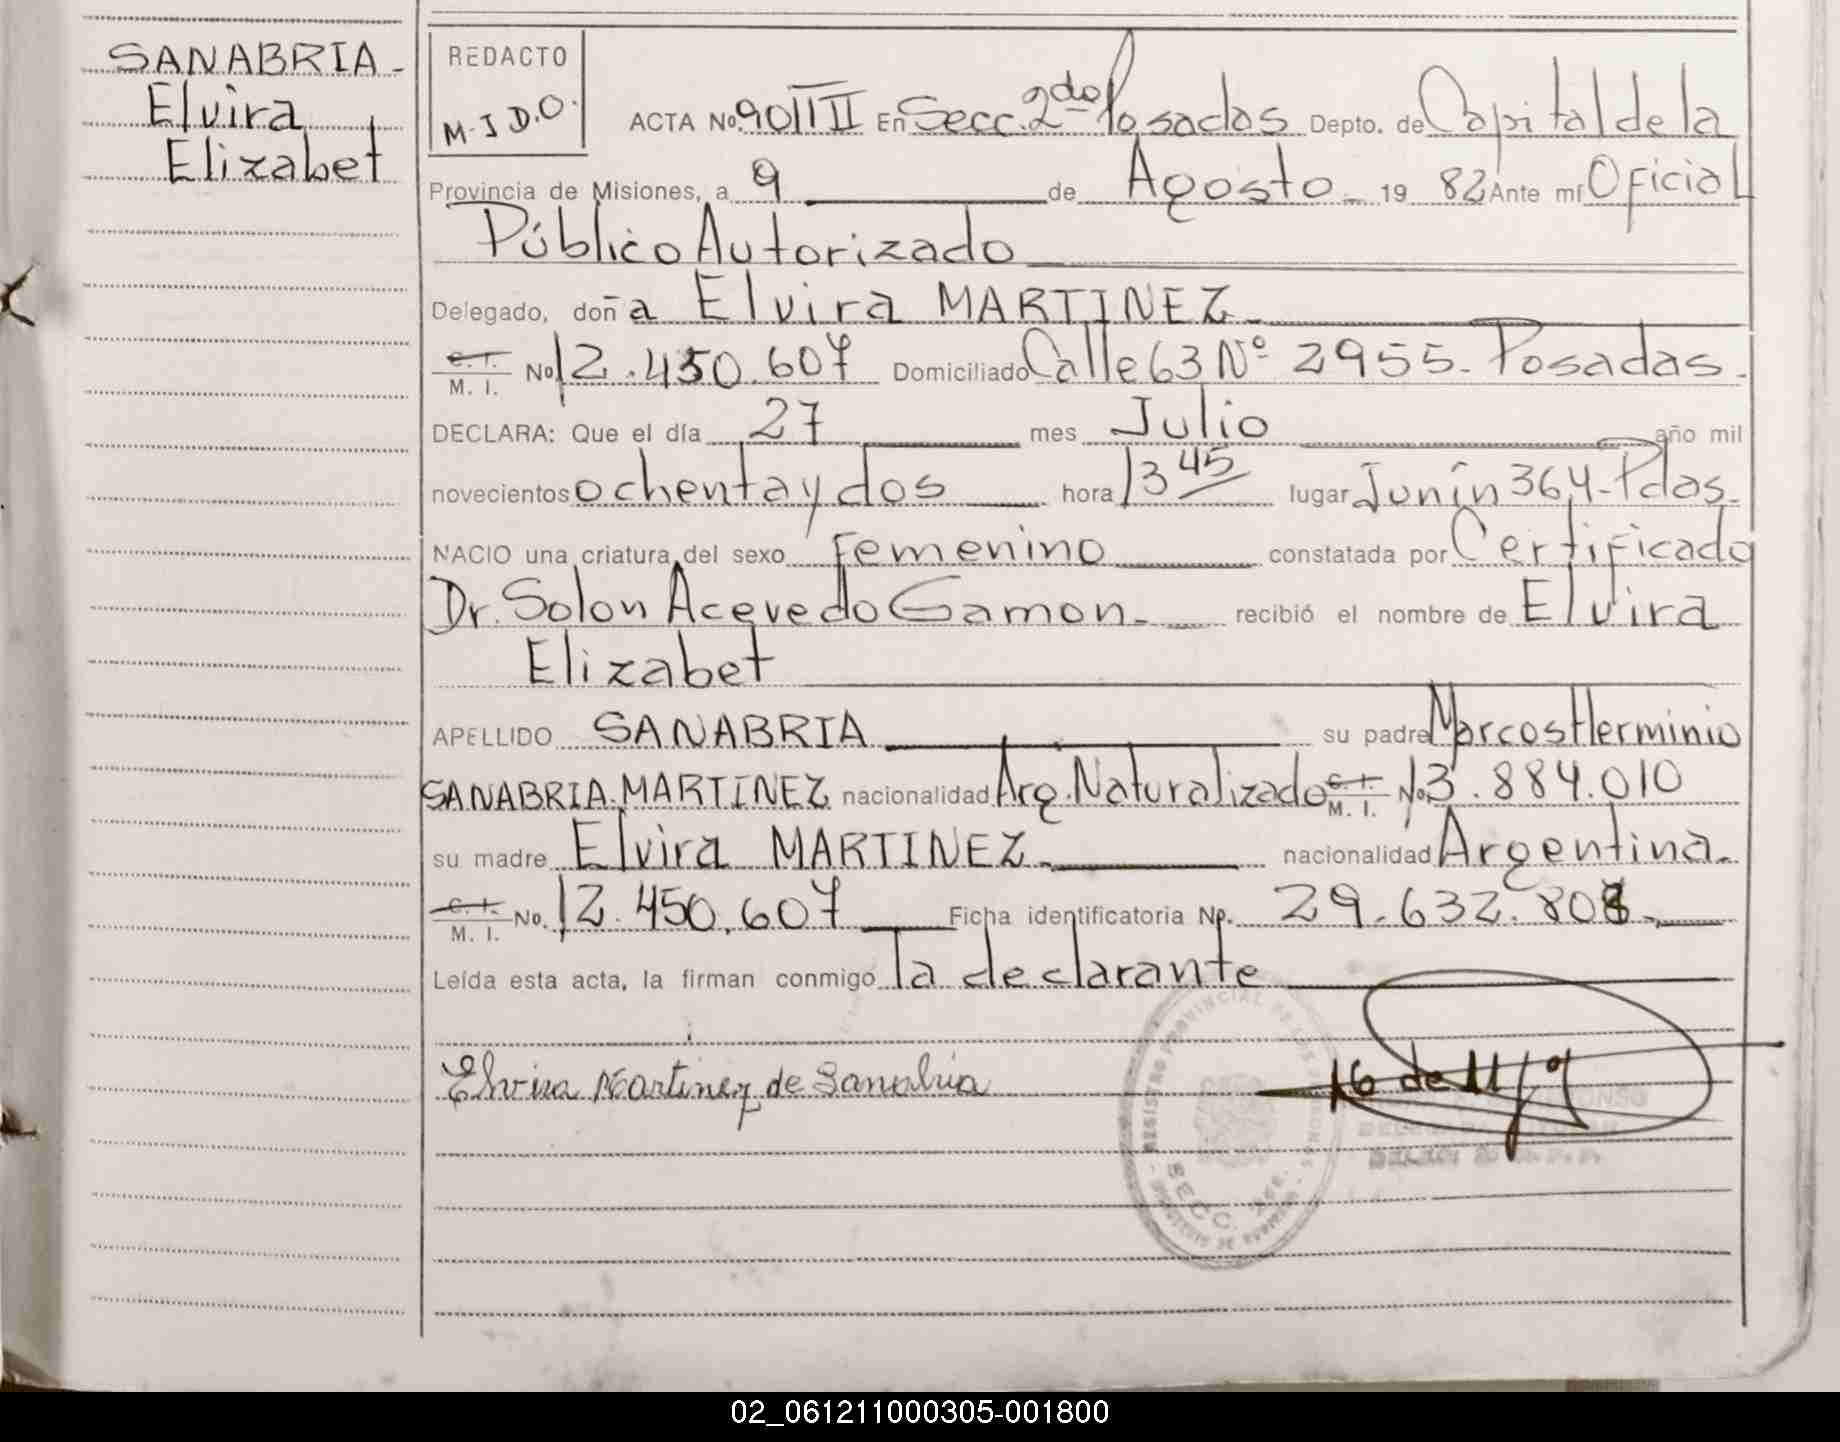 SANABRIA-
Elvira
Elizabet
REDACTO
M.J D.O.
ACTA No. 90 TII En Secc. 2do Posadas Depto. de Capital de la
Provincia de Misiones, a 9 de Agosto 19 82 Ante mí Oficial
Público Autorizado
Delegado, doña Elvira MARTINEZ
C. I. M. I. No 12.450.607 Domiciliado Calle 63 Nº 2955- Posadas.
DECLARA: Que el día 27 mes Julio año mil
novecientos ochenta y dos hora 13 45 lugar Junín 364-Pdas.
NACIO una criatura del sexo femenino constatada por Certificado
Dr. Solon Acevedo Gamon- recibió el nombre de Elvira
Elizabet
APELLIDO SANABRIA su padre Marcos Herminio
SANABRIA MARTINEZ nacionalidad Arg. Naturalizado C. I. M. I. No. 13.884.010
su madre Elvira MARTINEZ- nacionalidad Argentina.
C. I. M. I. No. 12.450.607 Ficha identificatoria No. 29.632.808-
Leída esta acta, la firman conmigo la declarante
Elvira Martinez de Sanabria
16 de 11
REGISTRO PROVINCIAL DE LAS PERSONAS
SECC.
02_061211000305-001800